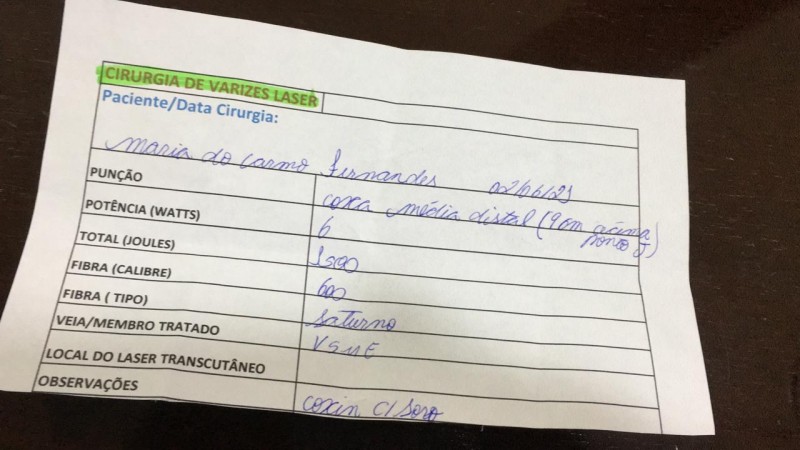 CIRURGIA DE VARIZES LASER
Paciente/Data Cirurgia:
Maria do Carmo Fernandes 02/06/21
PUNÇÃO coxa média distal (9cm acima
POTÊNCIA (WATTS) 6
TOTAL (JOULES)
FIBRA (CALIBRE) 600
FIBRA ( TIPO) Saturno
VEIA/MEMBRO TRATADO VSME
LOCAL DO LASER TRANSCUTÂNEO
OBSERVAÇÕES coxin c/ soro